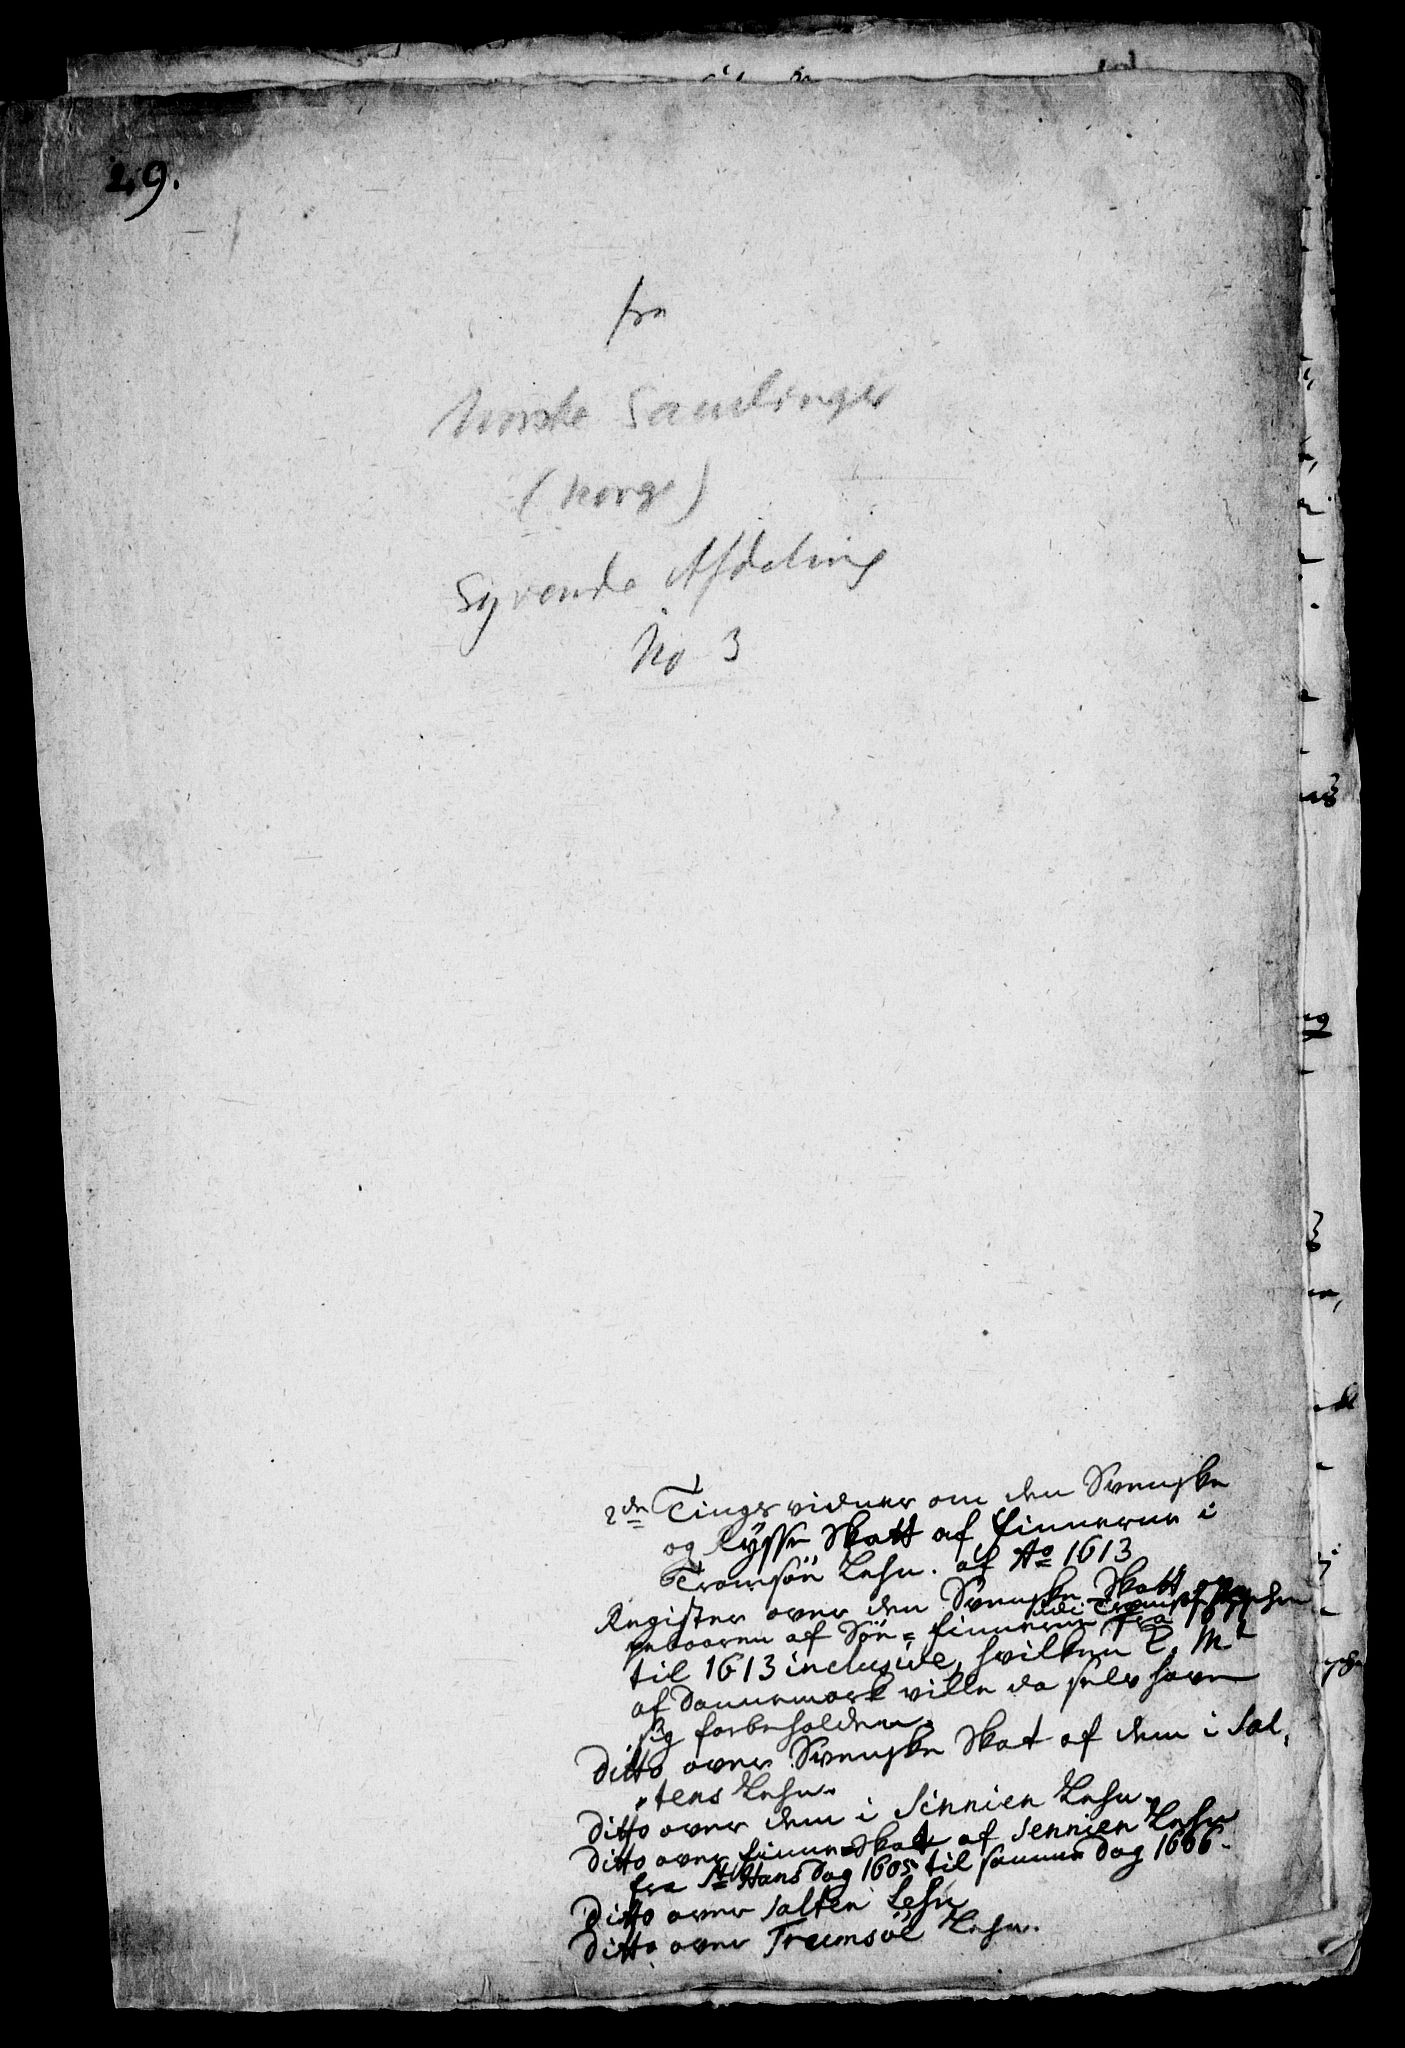 29.
fra
Norske Samlinger
(Norge)
Syvende Afdeling
No 3
2de Tingsvidner om den Svenske
og Rysse Skatt af Finnerne i
Tromsöe Lehn. af Ao 1613
Register over den Svenske Skatt
af Söe-Finnerne udi fra
til 1613 inclusive, hvilken K. Mt
af Dannemark ville da selv have
sig forbeholden.
Ditto over Svenske Skat af dem i Sal,
,tens Lehn.
Ditto over dem i Sennien Lehn.
Ditto over Finneskatt af Sennien Lehn
fra St Hans Dag 1605 til samme Dag 1606.
Ditto over Salten Lehn
Ditto over Tromsöe Lehn.